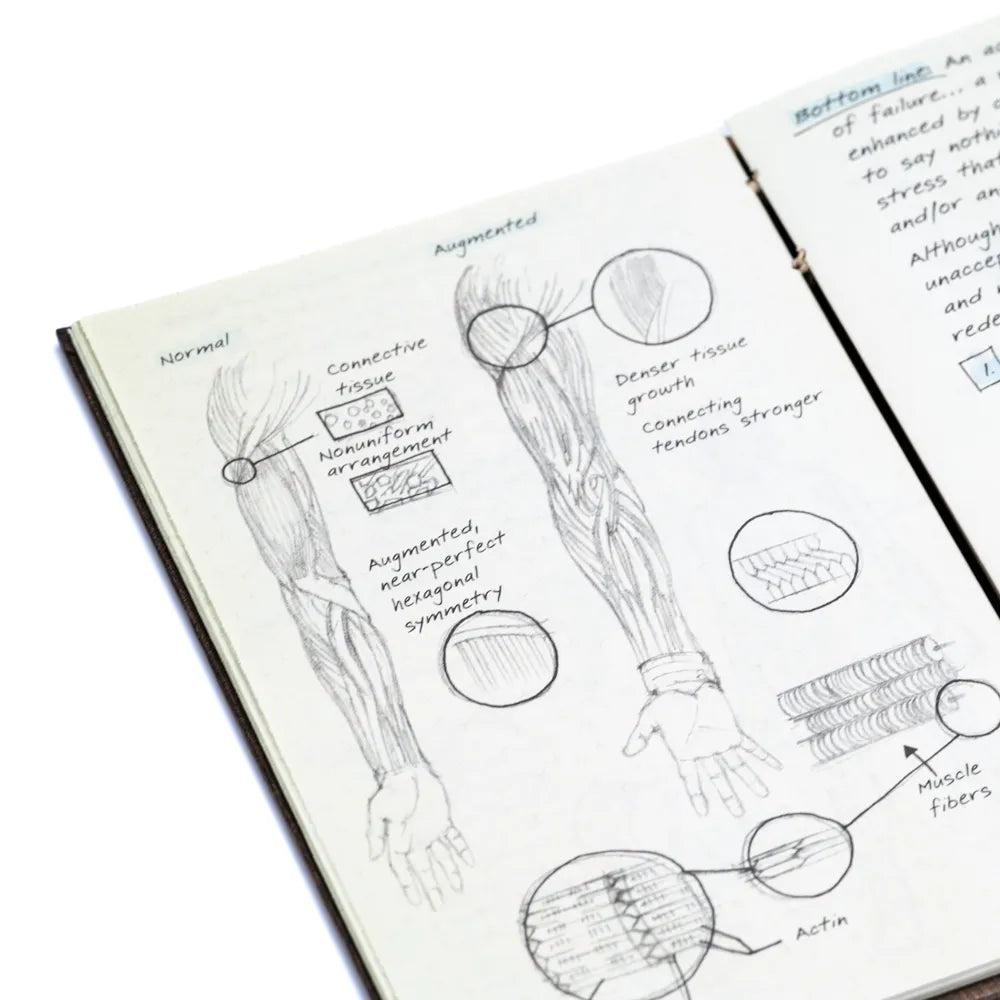 Normal
Connective
tissue
Nonuniform
arrangement
Augmented,
near-perfect
hexagonal
symmetry
Augmented
Denser tissue
growth
connecting
tendons stronger
Muscle
fibers
Actin
Bottom line: An
of failure... a
enhanced by
to say
stress
and/or
Although
and
1.